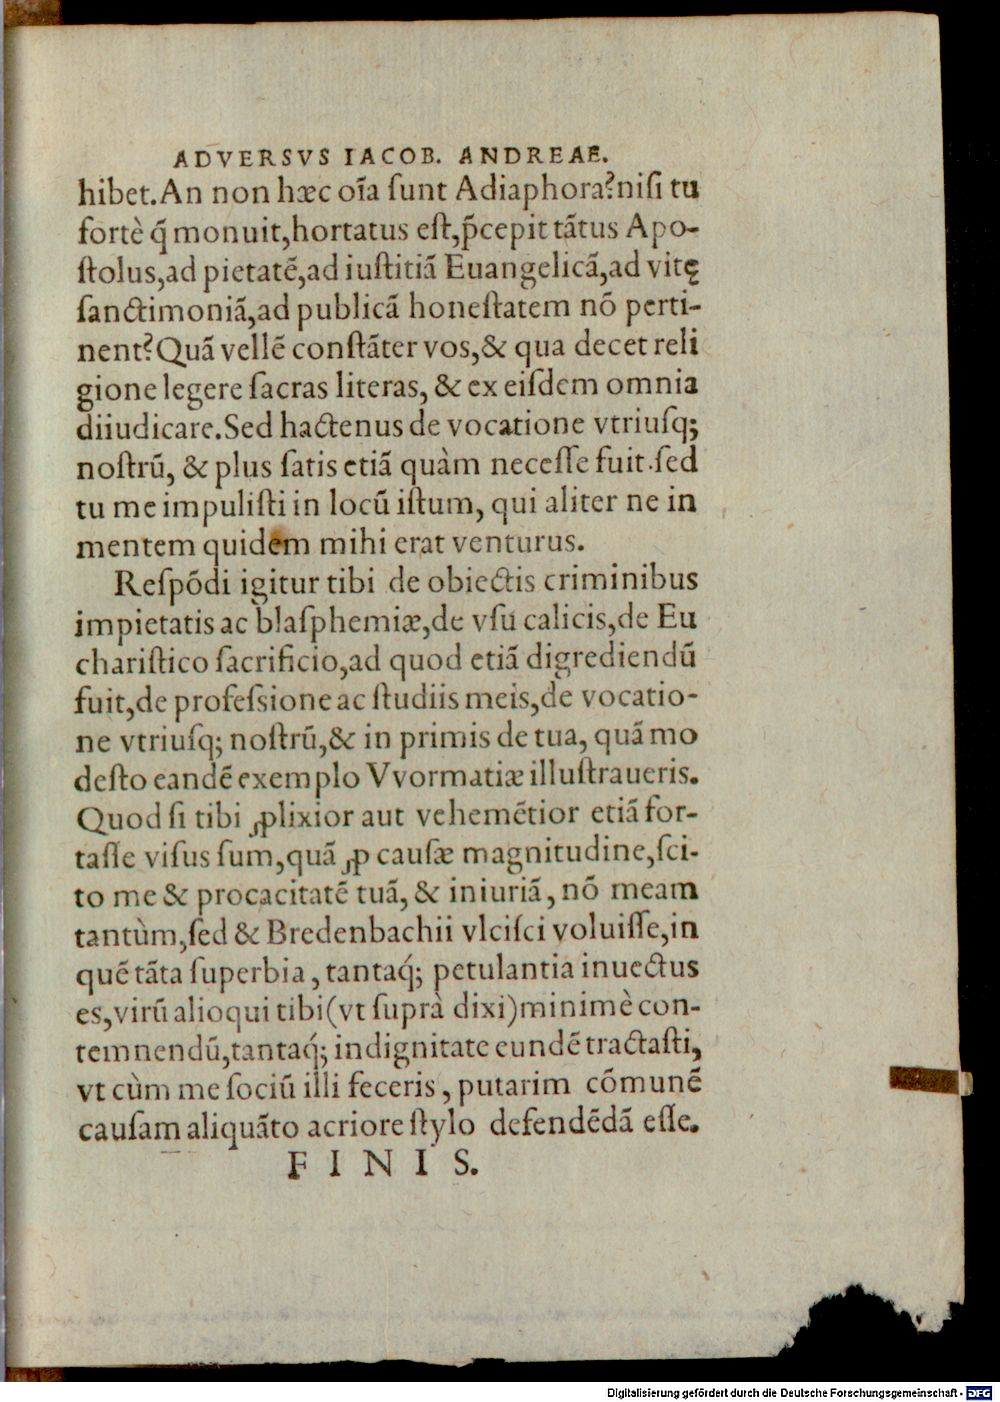 ADVERSVS IACOB. ANDREAE.
hibet.An non hæc oı̃a ſunt Adiaphora?niſi tu
fortè q̃ monuit,hortatus eſt,p̃cepit tãtus Apo-
ſtolus,ad pietatẽ,ad iuſtitiã Euangelicã,ad vitę
ſanctimoniã,ad publicã honeſtatem nõ perti-
nent?Quã vellẽ conſtãter vos,& qua decet reli
gione legere ſacras literas, & ex eiſdem omnia
diiudicare.Sed hactenus de vocatione vtriuſq;
noſtrũ, & plus ſatis etiã quàm neceſſe fuit.ſed
tu me impuliſti in locũ iſtum, qui aliter ne in
mentem quidem mihi erat venturus.
Reſpõdi igitur tibi de obiectis criminibus
impietatis ac blaſphemiæ,de vſu calicis,de Eu
chariſtico ſacrificio,ad quod etiã digrediendũ
fuit,de profeſsione ac ſtudiis meis,de vocatio-
ne vtriuſq; noſtrũ,& in primis de tua, quã mo
deſto eandẽ exemplo Vvormatiæ illuſtraueris.
Quod ſi tibi ꝓlixior aut vehemẽtior etiã for-
taſſe viſus ſum,quã ꝓ cauſæ magnitudine,ſci-
to me & procacitatẽ tuã, & iniuriã, nõ meam
tantùm,ſed & Bredenbachii vlciſci voluiſſe,in
quẽ tãta ſuperbia, tantaq́; petulantia inuectus
es,virũ alioqui tibi(vt ſuprà dixi)minimè con-
temnendũ,tantaq́; indignitate eundẽ tractaſti,
vt cùm me ſociũ illi feceris, putarim cõmunẽ
cauſam aliquãto acriore ſtylo defendẽdã eſſe.
F I N I S.
Digitalisierung gefördert durch die Deutsche Forschungsgemeinschaft - DFG